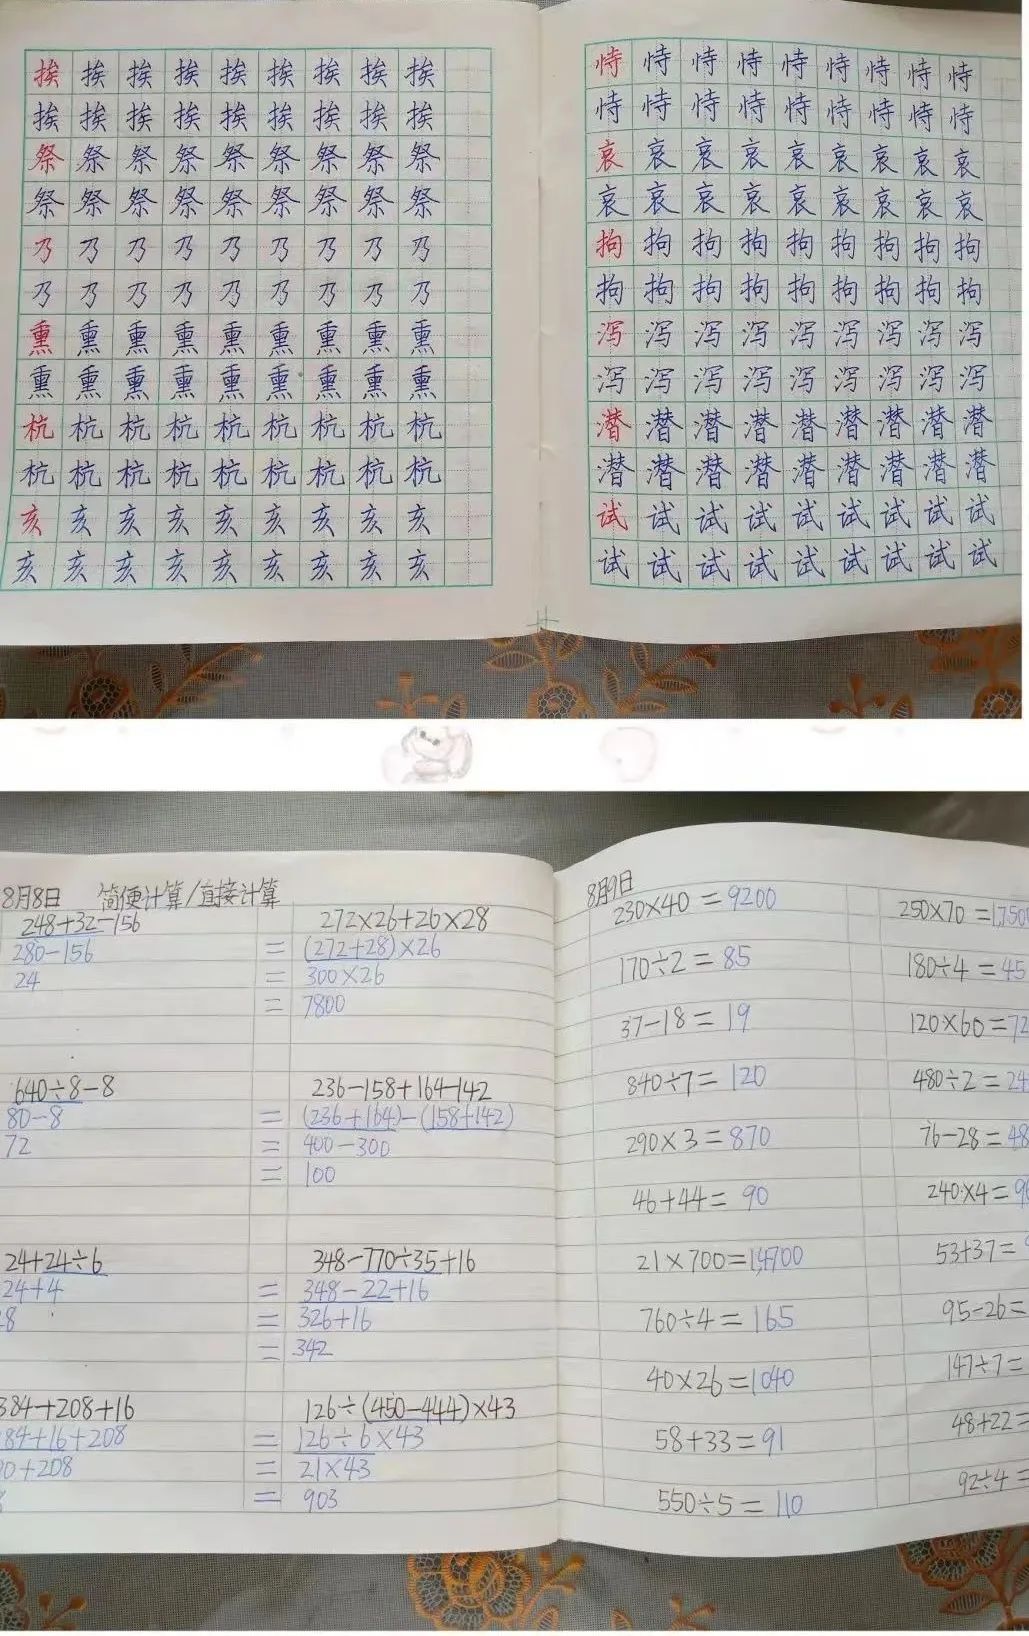 挨挨挨挨挨挨挨挨挨
挨挨挨挨挨挨挨挨挨
祭祭祭祭祭祭祭祭祭
祭祭祭祭祭祭祭祭祭
乃乃乃乃乃乃乃乃乃
乃乃乃乃乃乃乃乃乃
熏熏熏熏熏熏熏熏熏
熏熏熏熏熏熏熏熏熏
杭杭杭杭杭杭杭杭杭
杭杭杭杭杭杭杭杭杭
亥亥亥亥亥亥亥亥亥
亥亥亥亥亥亥亥亥亥
恃恃恃恃恃恃恃恃恃
恃恃恃恃恃恃恃恃恃
哀哀哀哀哀哀哀哀哀
哀哀哀哀哀哀哀哀哀
拘拘拘拘拘拘拘拘拘
拘拘拘拘拘拘拘拘拘
泻泻泻泻泻泻泻泻泻
泻泻泻泻泻泻泻泻泻
潜潜潜潜潜潜潜潜潜
潜潜潜潜潜潜潜潜潜
试试试试试试试试试
试试试试试试试试试
8月8日 简便计算/直接计算
248+32-156
280-156
24
640÷8-8
80-8
72
24+24÷6
24+4
8
384+208+16
84+16+208
0+208
272×26+26×28
=(272+28)×26
=300×26
=7800
236-158+164-142
=(236+164)-(158+142)
=400-300
=100
348-770÷35+16
=348-22+16
=326+16
=342
126÷(450-444)×43
=126÷6×43
=21×43
=903
8月9日
230×40=9200
170÷2=85
37-18=19
840÷7=120
290×3=870
46+44=90
21×700=14700
760÷4=165
40×26=1040
58+33=91
550÷5=110
250×70=1750
180÷4=45
120×60=72
480÷2=24
76-28=48
240×4=9
53+37=
95-26=
147÷7=
48+22=
92÷4=